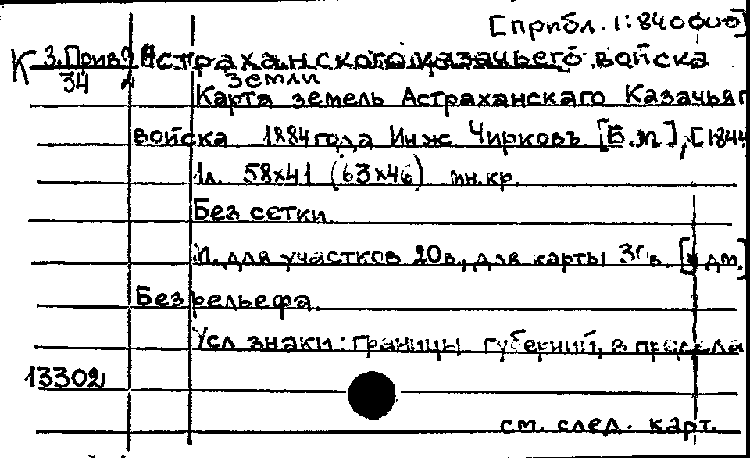 [прибл. 1:840000]
К 3.Прив. Астраханского казачьего войска
34 земли
Карта земель Астраханскаго Казачьяг
войска 1884 года Инж. Чирковъ [Б.м.], [1844
1л. 58х41 (63х46) ин. кр.
Без сетки.
М. для участков 20в., для карты дм.]
Без рельефа.
Усл знаки: границы губерний, в
13302
см. след. карт.